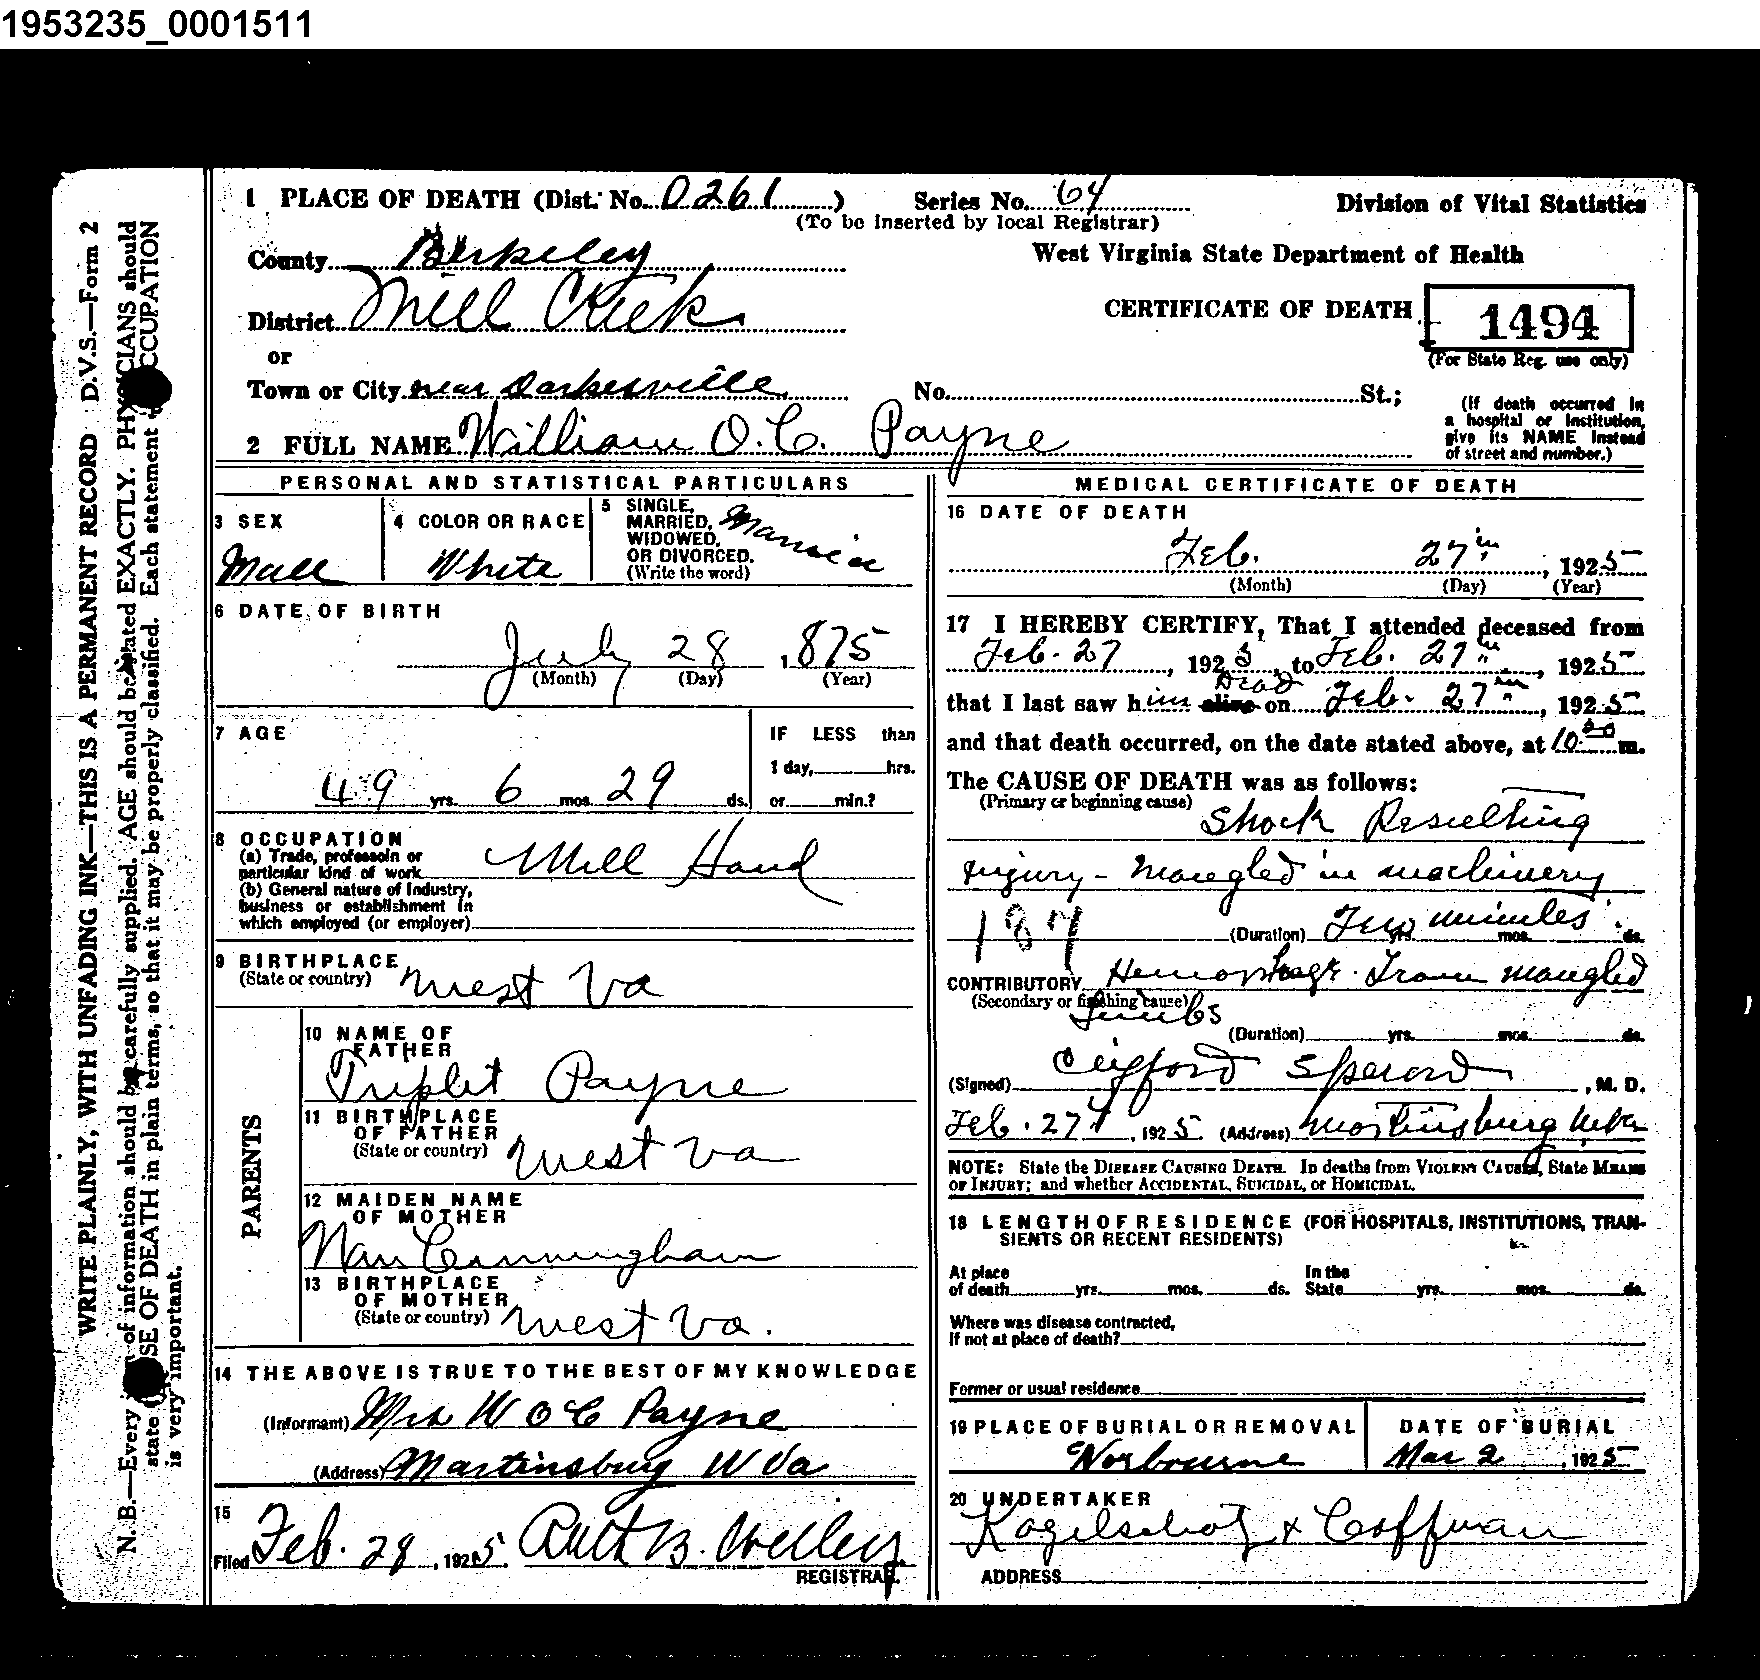 1953235_0001511
1 PLACE OF DEATH (Dist. No. 0261) Series No. 64 Division of Vital Statistics
(To be inserted by local Registrar)
County Berkeley West Virginia State Department of Health
District Mill Creek CERTIFICATE OF DEATH 1494
or (For State Reg. use only)
Town or City near Darkesville No. St.;
(If death occurred in
a hospital or institution,
give its NAME instead
of street and number.)
2 FULL NAME William O. C. Payne
PERSONAL AND STATISTICAL PARTICULARS
3 SEX
Male
4 COLOR OR RACE
White
5 SINGLE,
MARRIED,
WIDOWED,
OR DIVORCED.
(Write the word)
Married
6 DATE OF BIRTH
July 28, 1875
(Month) (Day) (Year)
7 AGE
49 yrs. 6 mos. 29 ds.
IF LESS than
1 day, hrs.
or min.?
8 OCCUPATION
(a) Trade, professoin or
particular kind of work Mill Hand
(b) General nature of Industry,
business or establishment in
which employed (or employer)
9 BIRTHPLACE
(State or country) West Va
PARENTS
10 NAME OF
FATHER
Triplet Payne
11 BIRTHPLACE
OF FATHER
(State or country) West Va
12 MAIDEN NAME
OF MOTHER
Nan Cunningham
13 BIRTHPLACE
OF MOTHER
(State or country) West Va.
14 THE ABOVE IS TRUE TO THE BEST OF MY KNOWLEDGE
(Informant) Mrs W O C Payne
(Address) Martinsburg W Va
15
Filed Feb. 28, 1925. Ruth B.
REGISTRAR.
MEDICAL CERTIFICATE OF DEATH
16 DATE OF DEATH
Feb. 27th, 1925
(Month) (Day) (Year)
17 I HEREBY CERTIFY, That I attended deceased from
Feb. 27, 1925, to Feb. 27th, 1925
that I last saw him alive Dead on Feb. 27th, 1925
and that death occurred, on the date stated above, at 10 m.
The CAUSE OF DEATH was as follows:
(Primary or beginning cause)
Shock Resulting
injury - Mangled in machinery
187 (Duration) Few minutes yrs. mos. ds.
CONTRIBUTORY Hemorrhage. From mangled
(Secondary or finishing cause)
Limbs
(Duration) yrs. mos. ds.
(Signed) Clifford Sperow, M. D.
Feb. 27th, 1925. (Address) Martinsburg W.Va
NOTE: State the DISEASE CAUSING DEATH. In deaths from VIOLENT CAUSES, State MEANS
OF INJURY; and whether ACCIDENTAL, SUICIDAL, or HOMICIDAL.
18 LENGTH OF RESIDENCE (FOR HOSPITALS, INSTITUTIONS, TRAN-
SIENTS OR RECENT RESIDENTS)
At place
of death yrs. mos. ds.
In the
State yrs. mos. ds.
Where was disease contracted,
If not at place of death?
Former or usual residence
19 PLACE OF BURIAL OR REMOVAL
Norbourne
DATE OF BURIAL
Mar 2, 1925
20 UNDERTAKER
Kogelschatz & Coffman
ADDRESS
WRITE PLAINLY, WITH UNFADING INK—THIS IS A PERMANENT RECORD D.V.S.—Form 2
N. B.—Every of information should be carefully supplied. AGE should be stated EXACTLY. PHYSICIANS should
state SE OF DEATH in plain terms, so that it may be properly classified. Each statement CCUPATION
is very important.